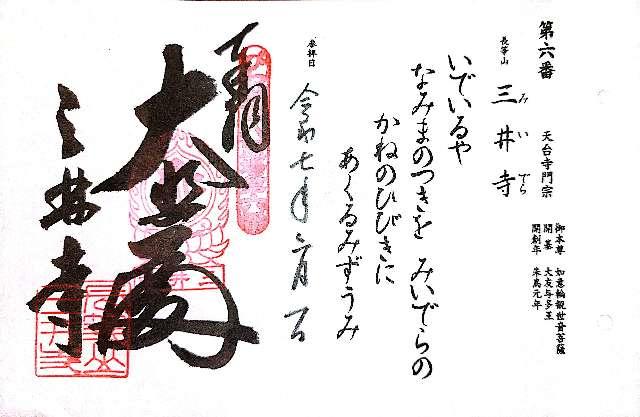 第六番
長等山 三井寺
みいでら
天台寺門宗
御本尊 如意輪観世音菩薩
開基 大友与多王
開創年 朱鳥元年
いでいるや
なみまのつきを みいでらの
かねのひびきに
あくるみずうみ
参拝日
令和七年二月一日
奉拝
大悲殿
三井寺